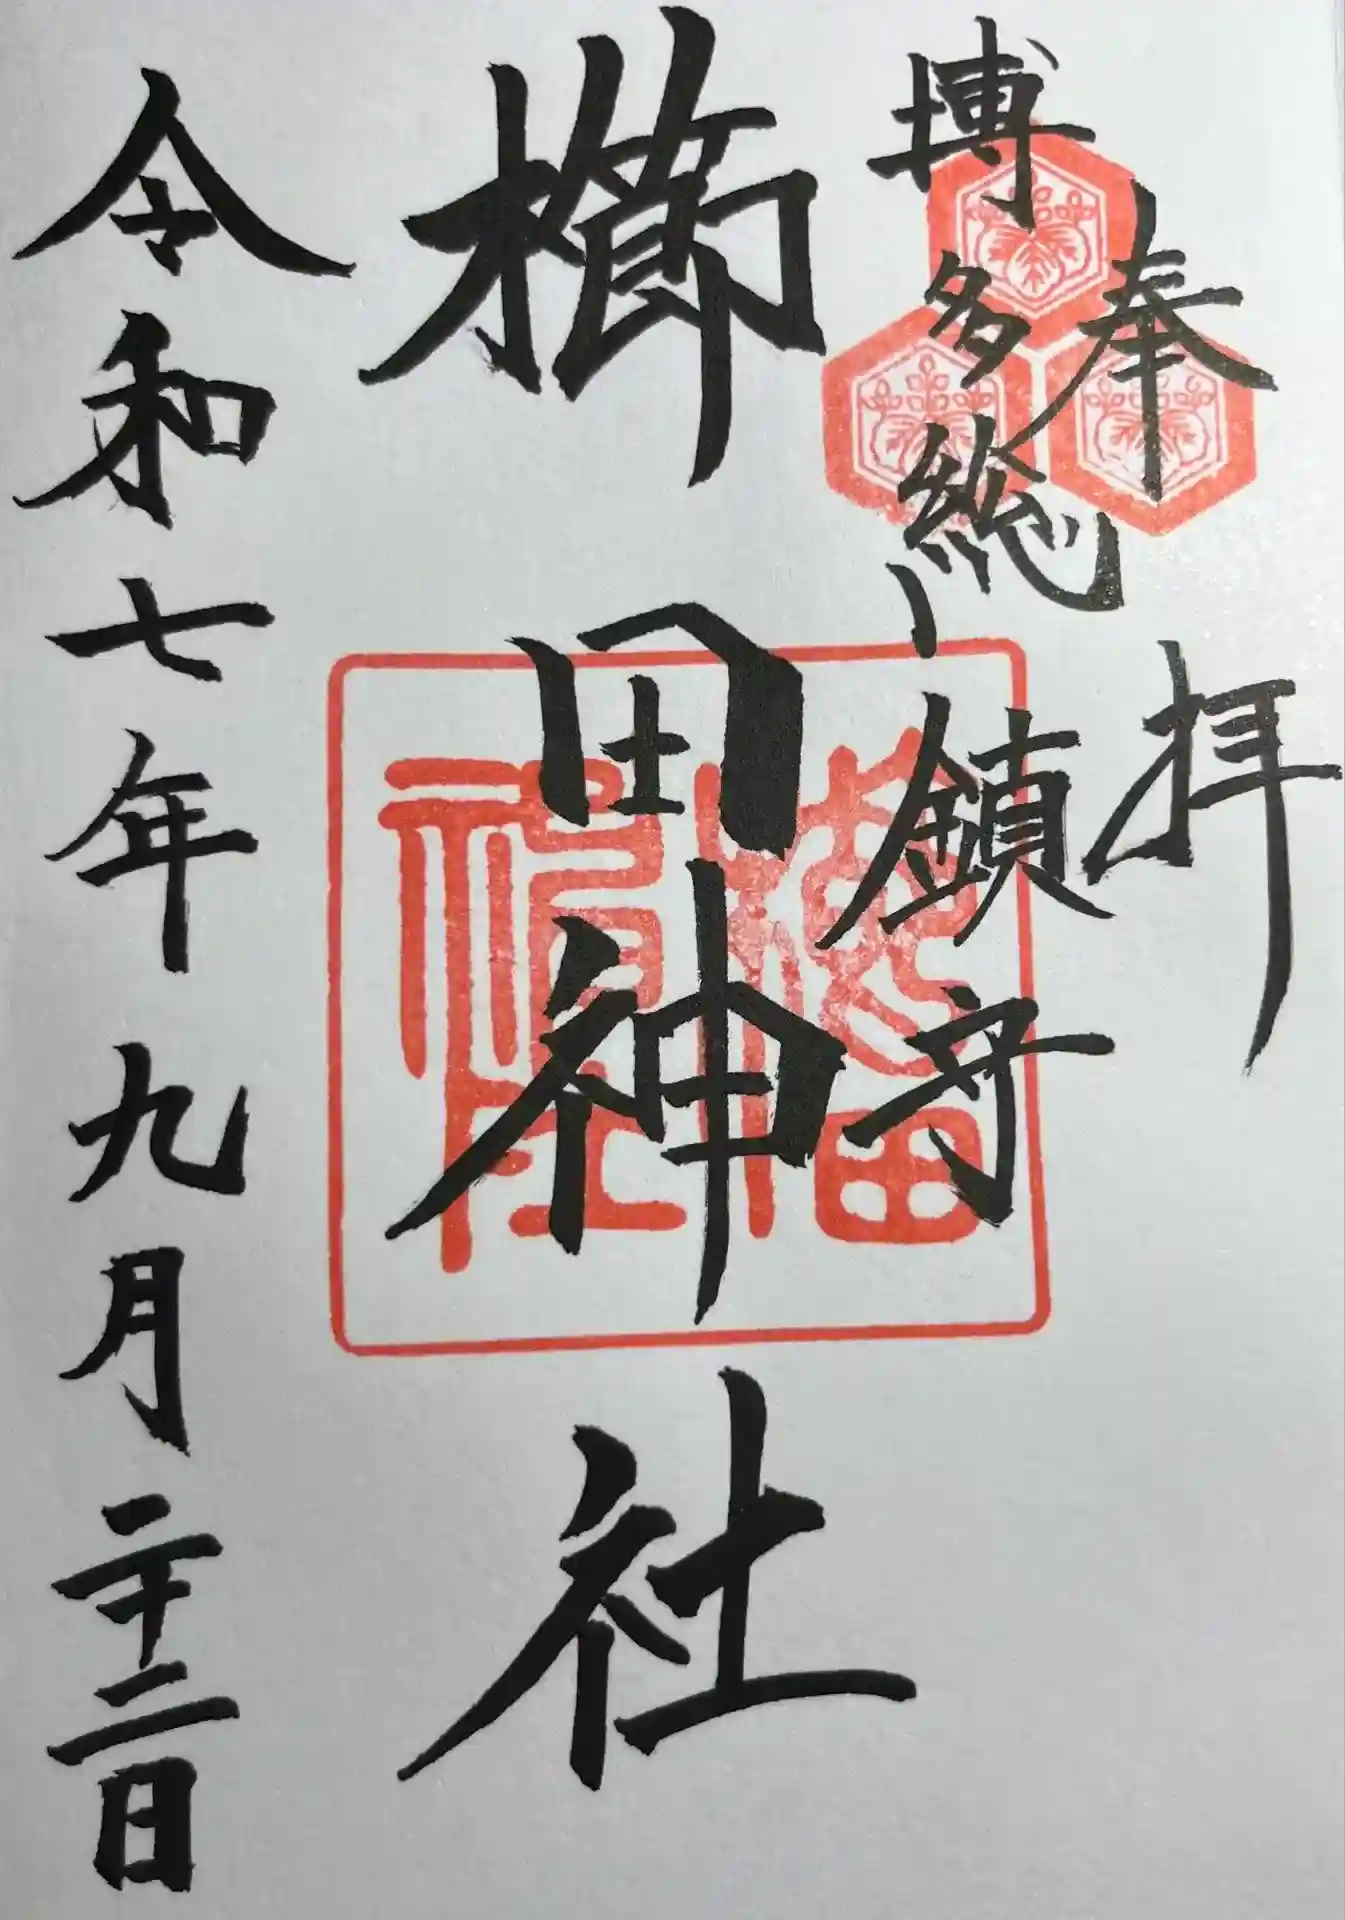 奉拝
博多総鎮守
櫛田神社
櫛田神社
令和七年九月二十二日